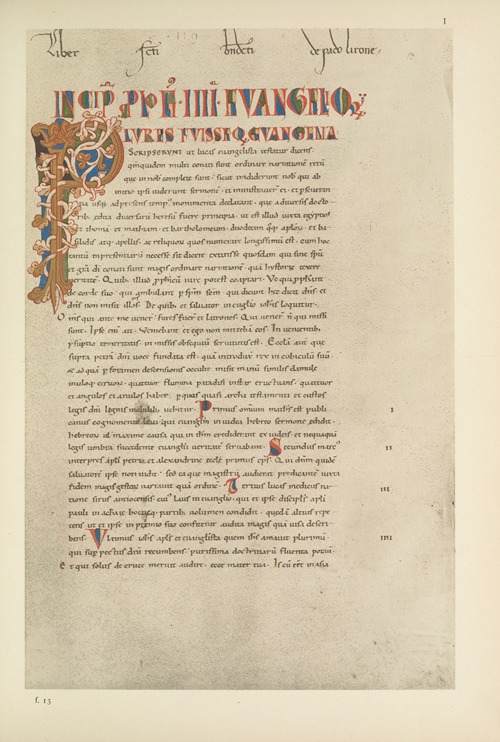 1
Liber scti bndcti de pado lirone.
INCIP PPH IIII EVANGELIOR
LVRES FVISSE Q EVANGELIA
SCRIPSERVNT ut lucas euangelista testatur dicens.
qm quidem multi conati sunt ordinare narrationē rerū
que in nob complete sunt. sicut tradiderunt nob qui ab
initio ipsi uiderunt sermonē. et ministrauer ei. et pseueran
usq ad presens temp monumenta declarant. que a diuersis aucto
rib edita diuersarū heresū fuere principia. ut est illud iuxta egyptios
et thomā. et mathiam. et bartholomeum. duodecim qq aplox. et ba
silidis atq apellis. ac reliquox quos enumerare longissimū est. cum hoc
tantū inpresentiarū necesse sit dicere. extitisse quosdam qui sine spū
et grā dī conati sunt magis ordinare narrationē. quā hystorie texere
ueritatē. Quib iure potest coaptari. Ve qui pphant
de corde suo. qui ambulant p spm suum. qui dicunt hec dicit dns. et
dns non misit illos. De quib et saluator in euglio iohis loquitur.
Oms qui ante me uener. fures fuer et latrones. Qui uener n qui missi
sunt. Ipse eni ait. Veniebant et ego non mittebā eos. In uenientib
psuptio temeritatis. in missis obsequiū seruitutis est. Eccla aut que
supra petrā dni uoce fundata est. quā introduxit rex in cubiculū suū.
et ad quā p foramen descensionis occulte misit manū similis damule
innloq ceruox. quattuor flumina paradisi instar eructans. quattuor
et angulos et anulos habet. p quos quasi archa testamenti et custos
legis dni lignis mobilib uehitur. Primus omium maths est publi
canus cognomento leui. qui euanglm in iudea hebreo sermone edidit.
I
hebreox ul maxime causa qui in ihm crediderant ex iudeis. et nequaquā
legis umbra succedente euanglii ueritatē seruabant. Secundus marc
II
interpres apli petri. et alexandrine eccle primus eps. Qui dnm quidē
saluatorē ipse non uidit. sed ea que magistrū audierat predicante iuxta
fidem magis gestox narrauit quā ordinē. Tertius lucas medicus na
III
tione sirus antiocensis. cui laus in euanglio. qui et ipse discipls apli
pauli in achaie boetieq partib uolumen condidit. quedā altius repe
tens. ut et ipse in premio suo confitetur audita magis quā uisa descri
bens. Vltimus iohs apls et euanglista quem ihs amauit plurimū.
IIII
qui sup pectus dni recumbens. purissima doctrinarū fluenta potuit.
Et qui solus de cruce meruit audire. ecce mater tua. Is cū eet in asia
f. 13